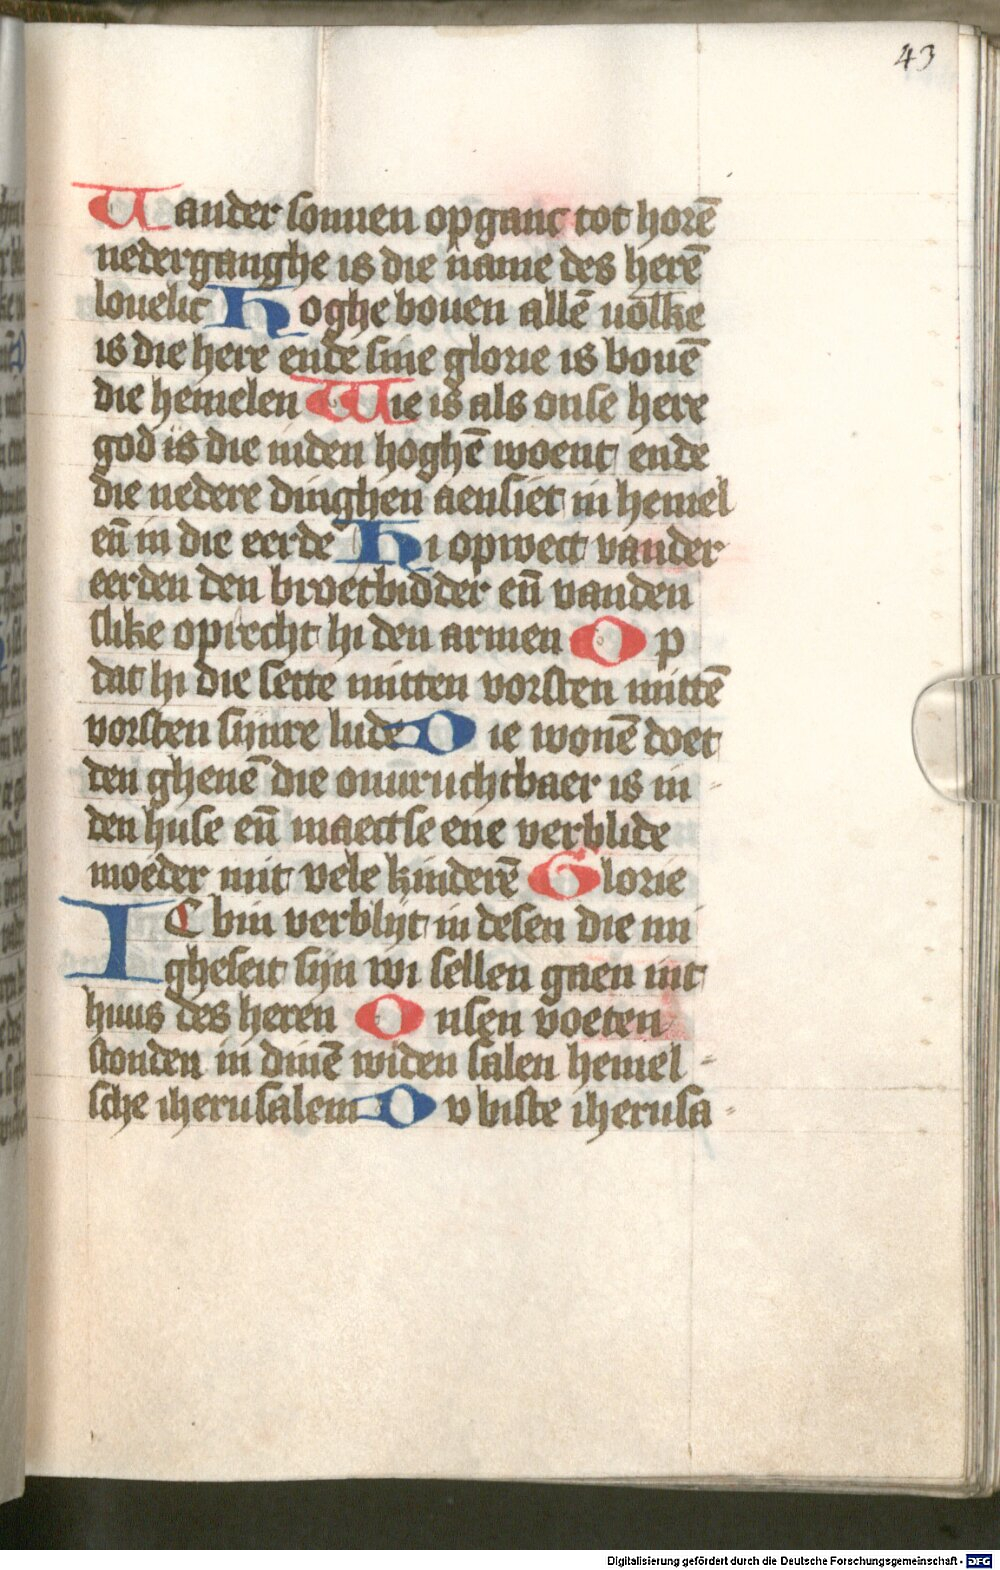 43
Vander sonnen opganc tot horē
nederganghe is die name des herē
louelic Hoghe bouen allē uolke
is die here ende sine glorie is bouē
die hemelen Wie is als onse here
god is die inden hoghē woent ende
die nedere dinghen aensiet in hemel
eñ in die eerde Hi opwect vander
eerden den broetbidder eñ vanden
slike oprecht hi den armen Op
dat hi die sette mitten vorsten mittē
vorsten sijnre lude Die wonē doet
den ghenē die onuruchtbaer is in-
den huse eñ maectse ene verblide
moeder mit vele kinderē Glorie
IC bin verblijt in desen die mi
gheseit sijn wi sellen gaen int
huus des heren Onsen voeten
stonden in dinē widen salen hemel-
sche iherusalem Du biste iherusa-
Digitalisierung gefördert durch die Deutsche Forschungsgemeinschaft - DFG